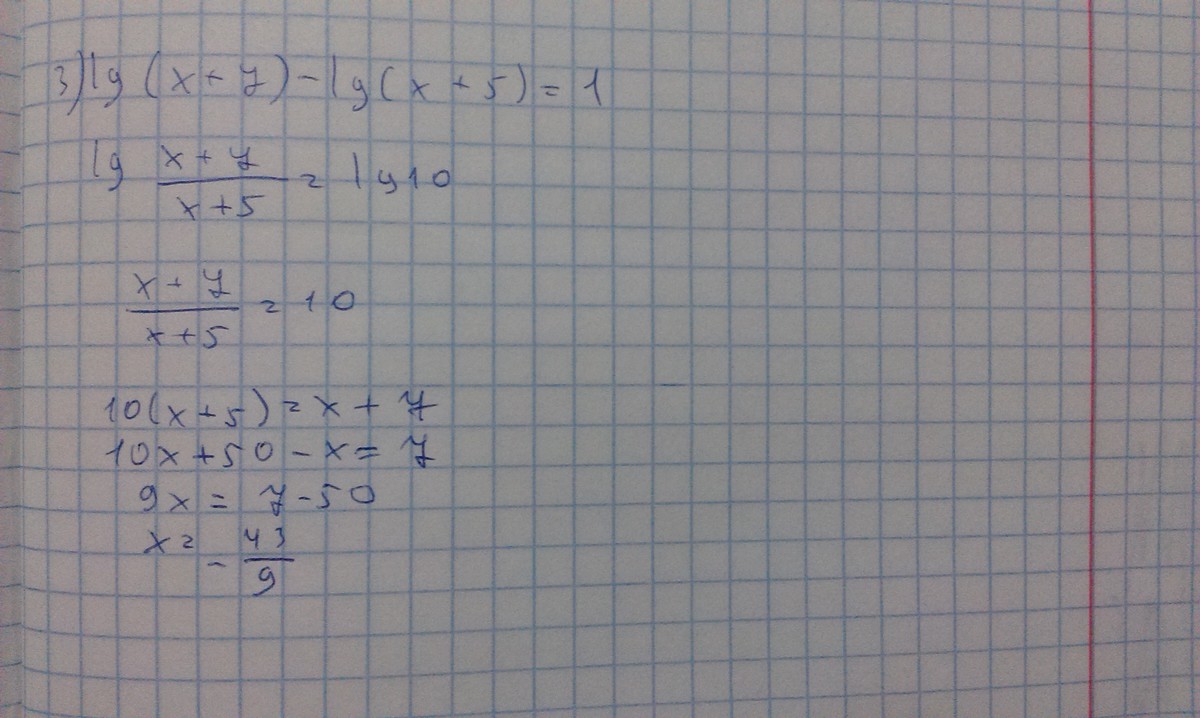 3) lg (x + 7) - lg (x + 5) = 1
lg (x + 7)/(x + 5) = lg 10
(x + 7)/(x + 5) = 10
10(x + 5) = x + 7
10x + 50 - x = 7
9x = 7 - 50
x = - 43/9